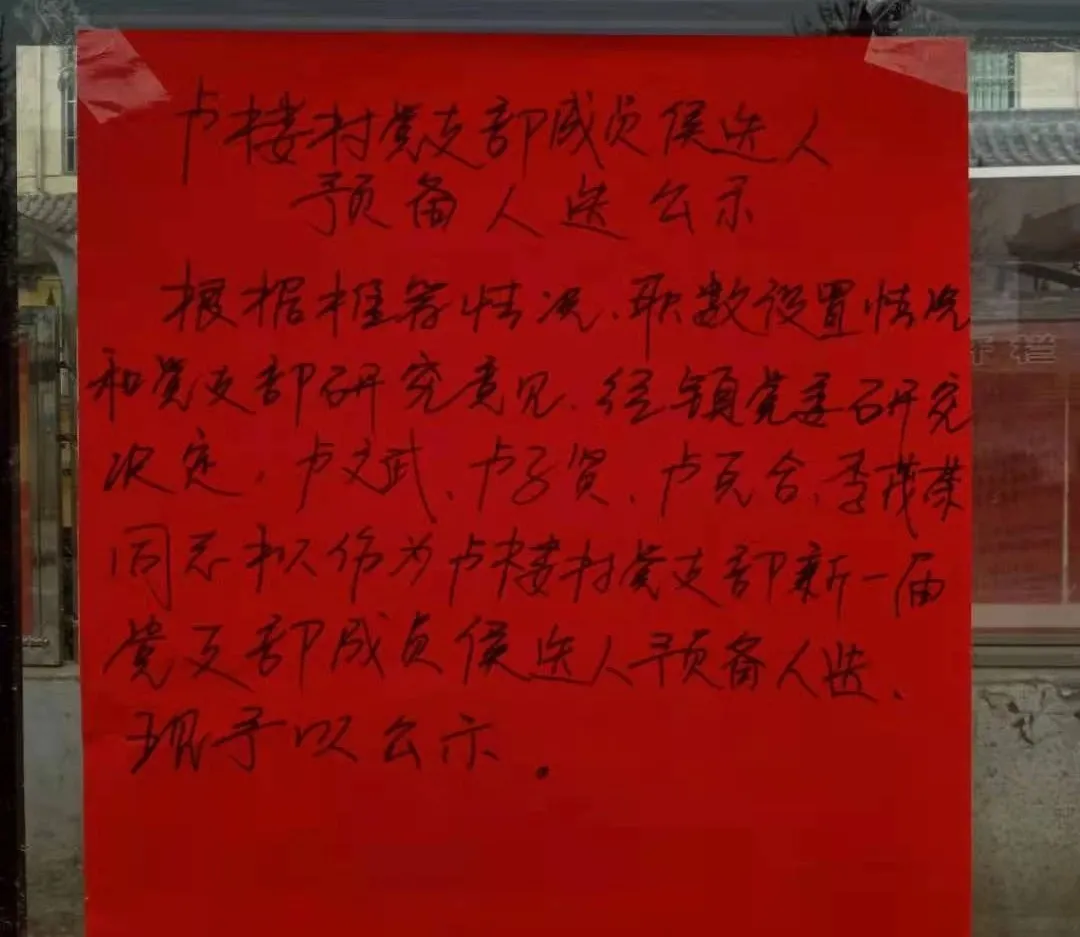 卢楼村党支部成员候选人
预备人选公示
根据推荐情况、职数设置情况
和党支部研究意见、经镇党委研究
决定，卢文武、卢子贤、卢克合、李茂荣
同志拟作为卢楼村党支部新一届
党支部成员候选人预备人选、
现予以公示。
栏